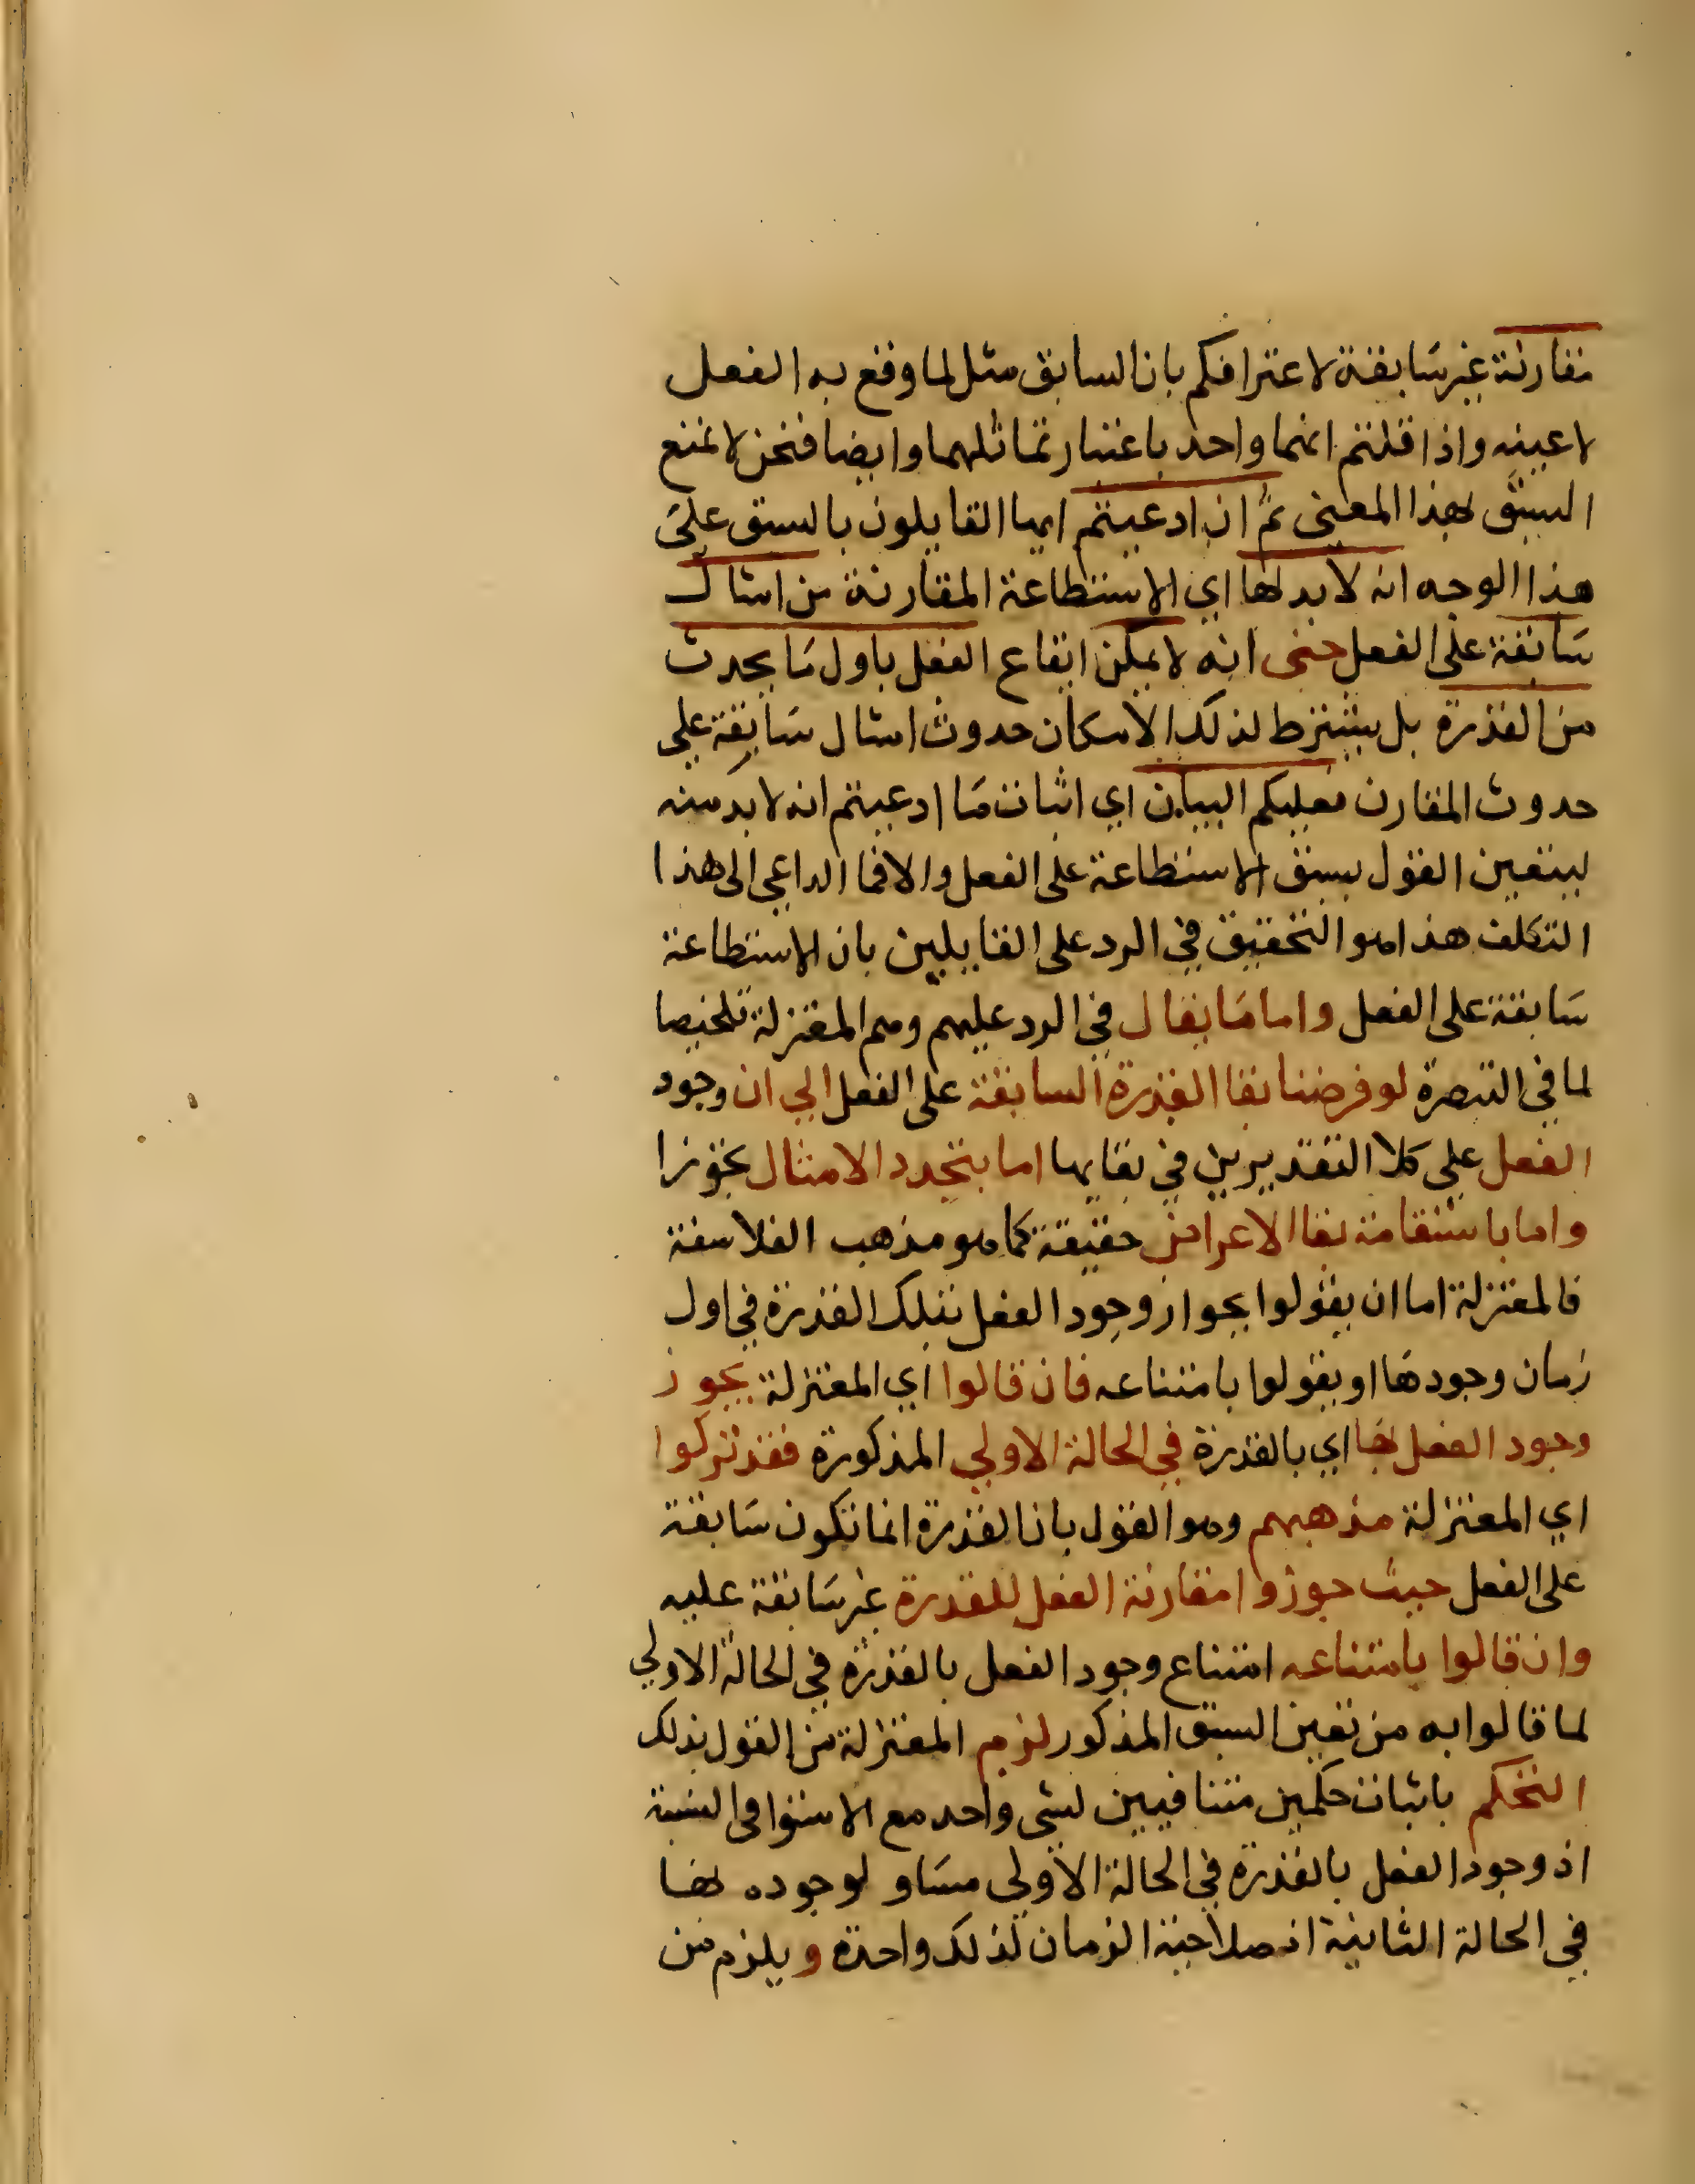 مقارنة غير سابقة لاعترافكم بان السابق مثل لما وقع به الفعل
لا عينه واذا قلتم انهما واحد باعتبار تماثلهما وايضا فنحن لا نمنع
السبق بهذا المعنى ثم ان ادعيتم ايها القايلون بالسبق على
هذا الوجه انه لا بد لها اي الاستطاعة المقارنة من امثال
سابقة على الفعل حتى انه لا يمكن ايقاع الفعل باول ما يحدث
من القدرة بل يشترط لذلك الامكان حدوث امثال سابقة علي
حدوث المقارن فعليكم البيان اي اثبات ما ادعيتم انه لا بد منه
ليتعين القول بسبق الاستطاعة على الفعل والا فما الداعي الى هذا
التكلف هذا هو التحقيق في الرد على القايلين بان الاستطاعة
سابقة على الفعل واما ما يقال في الرد عليهم وهم المعتزلة تلخيصا
لما في التبصرة لو فرضنا بقا القدرة السابقة على الفعل الي ان وجود
الفعل علي كلا التقديرين في بقايها اما بتجدد الامثال تجوزا
واما باستقامة بقا الاعراض حقيقة كما هو مذهب الفلاسفة
فالمعتزلة اما ان يقولوا بجواز وجود الفعل بتلك القدرة في اول
زمان وجودها او يقولوا بامتناعه فان قالوا اي المعتزلة بجواز
وجود الفعل بها اي بالقدرة في الحالة الاولي المذكورة فقد تركوا
اي المعتزلة مذهبهم وهو القول بان القدرة انما تكون سابقة
على الفعل حيث جوزوا مقارنة الفعل للقدرة غير سابقة عليه
وان قالوا بامتناعه امتناع وجود الفعل بالقدرة في الحالة الاولي
لما قالوا به من تعين السبق المذكور لزم المعتزلة من القول بذلك
التحكم باثبات حكمين متنافيين لشي واحد مع الاستوا في النسبة
اذ وجود الفعل بالقدرة في الحالة الاولي مساو لوجوده بها
في الحالة الثانية اذ صلاحية الزمان لذلك واحدة ويلزم من